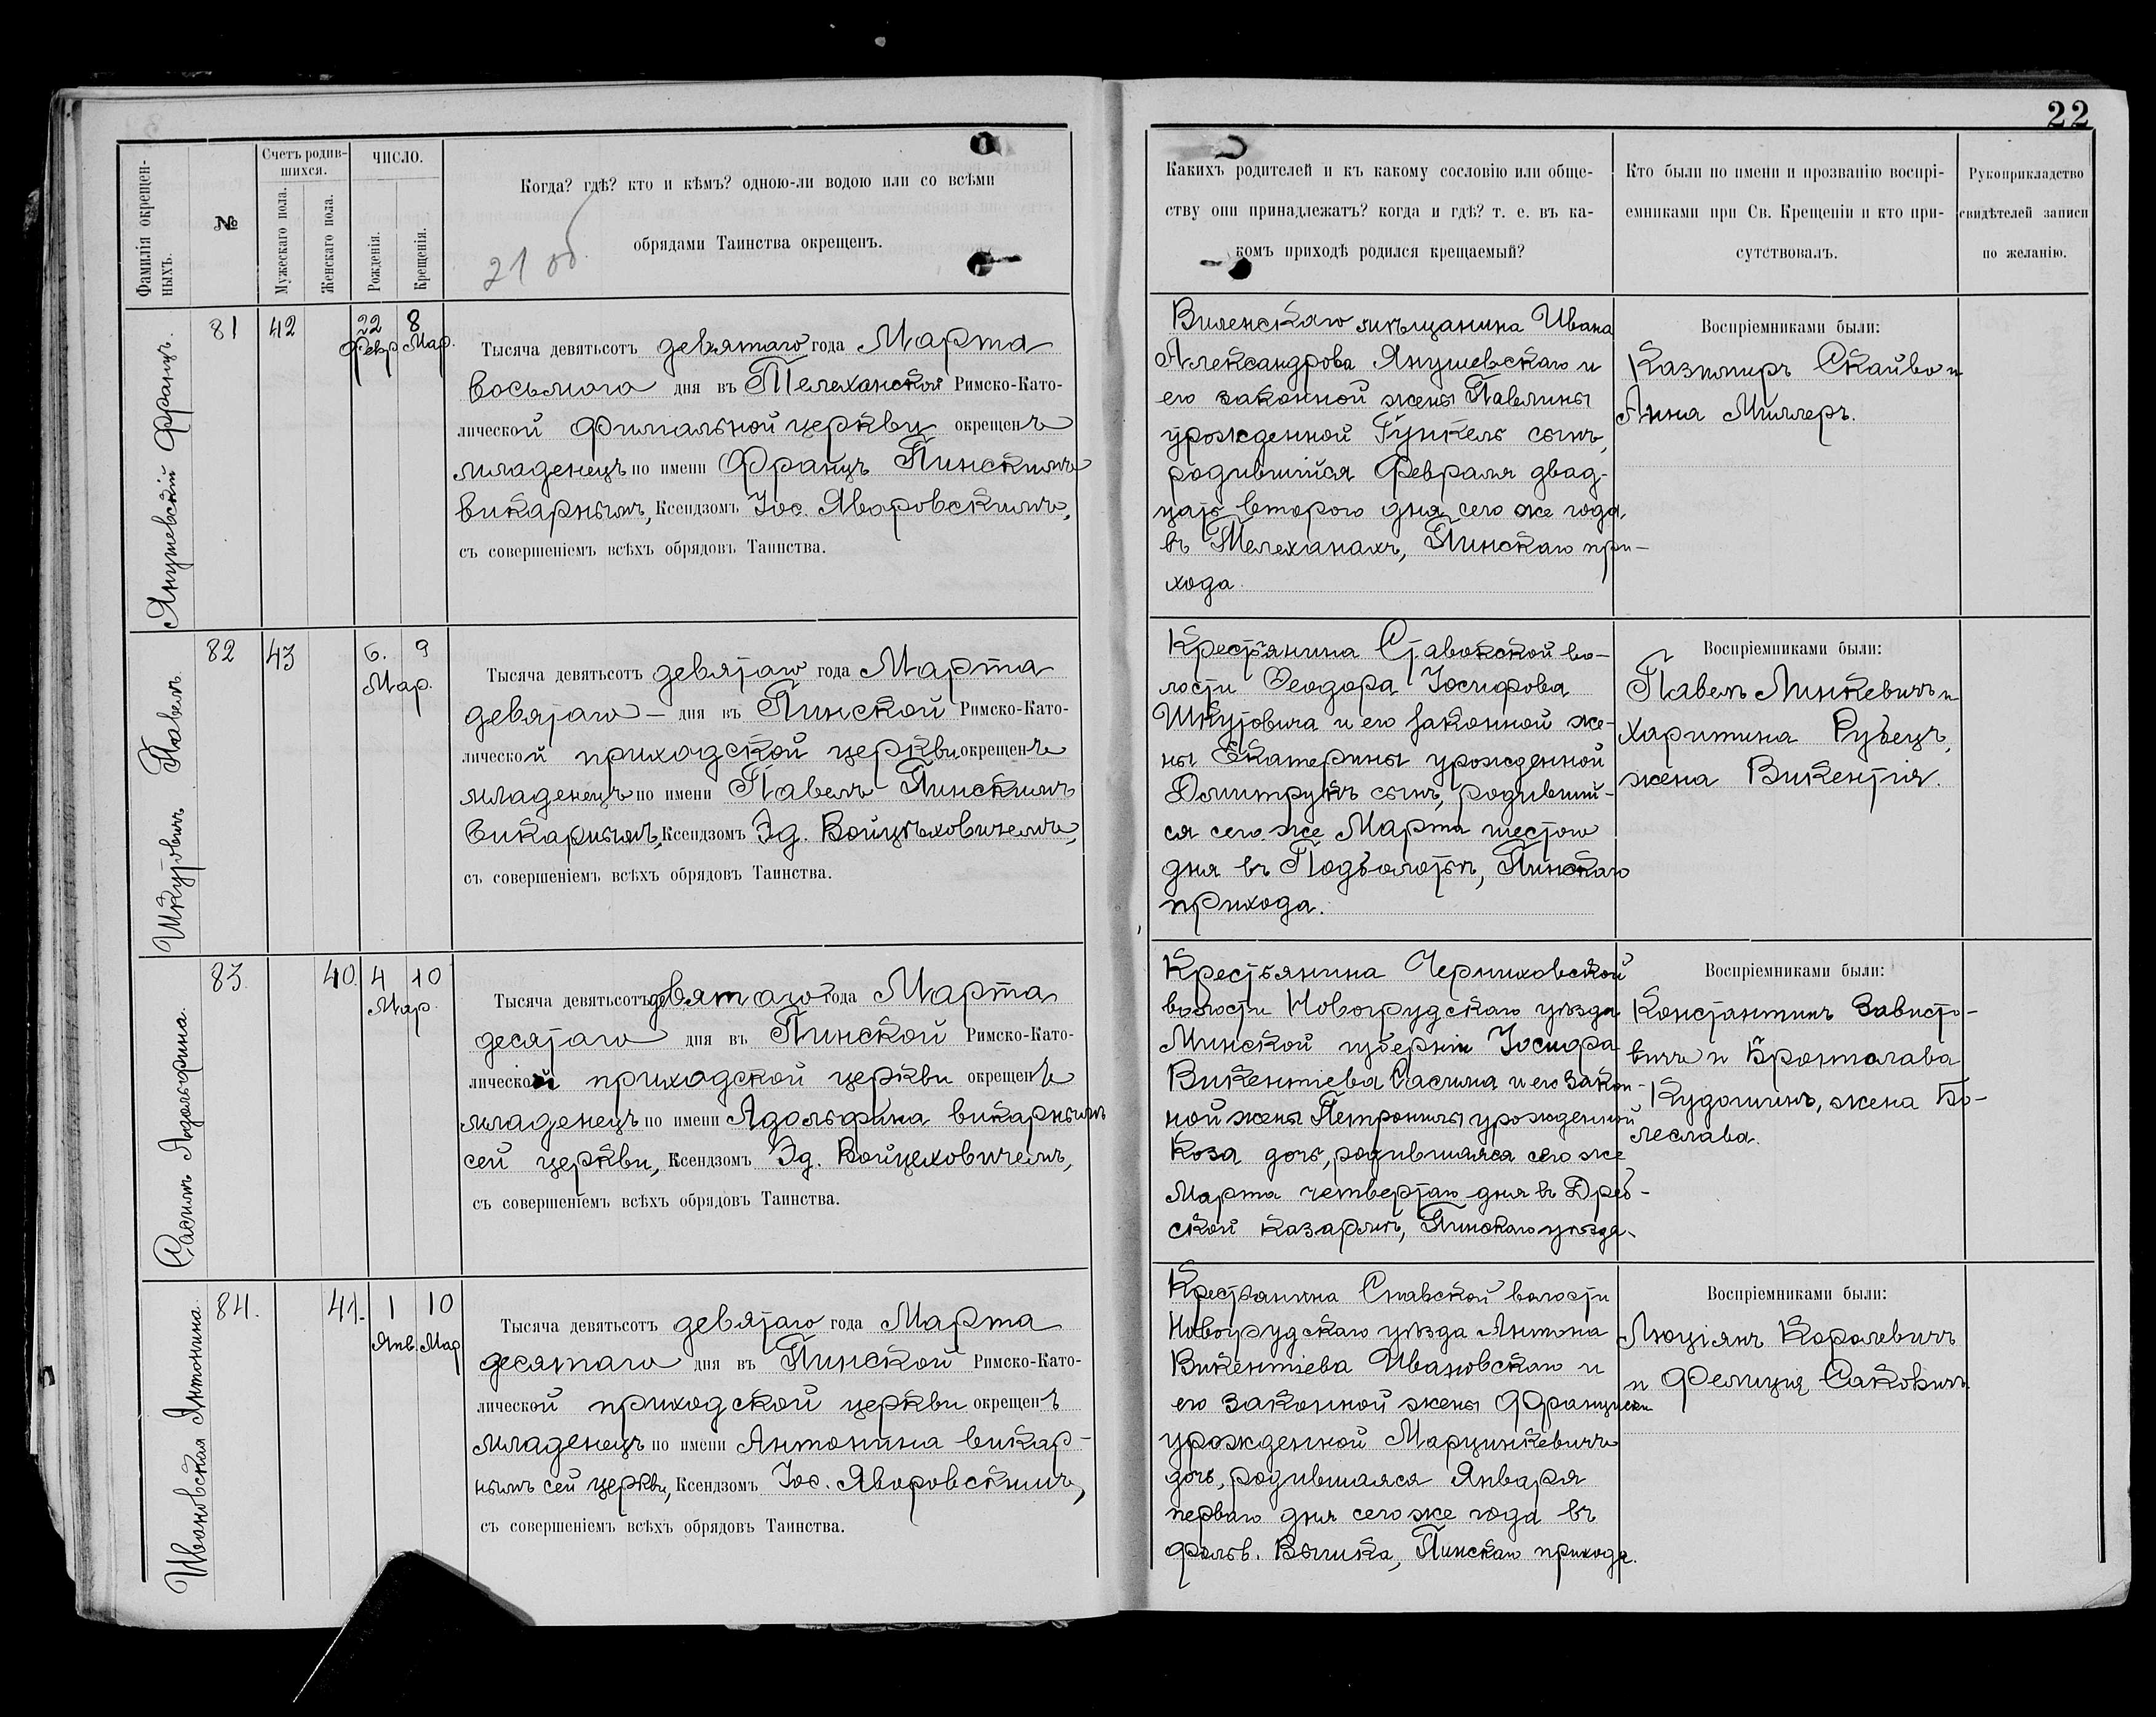 22
Фамилія окрещен-
ныхъ.
№
Счетъ родив-
шихся.
Мужескаго пола.
Женскаго пола.
ЧИСЛО.
Рожденія.
Крещенія.
Когда? гдѣ? кто и кѣмъ? одною-ли водою или со всѣми
обрядами Таинства окрещенъ.
21 об
Какихъ родителей и къ какому сословію или обще-
ству они принадлежатъ? когда и гдѣ? т. е. въ ка-
комъ приходѣ родился крещаемый?
Кто были по имени и прозванію воспрі-
емниками при Св. Крещеніи и кто при-
сутствовалъ.
Рукоприкладство
свидѣтелей записи
по желанію.
Янушевскій Францъ.
81
42
22 8
Февр Мар.
Тысяча девятьсотъ девятаго года Марта
восьмого дня въ Телеханской Римско-Като-
лической филіальной церкви окрещенъ
младенецъ по имени Францъ Пинскимъ
викарнымъ, Ксендзомъ Іос. Яворовскимъ,
съ совершеніемъ всѣхъ обрядовъ Таинства.
Виленскаго мѣщанина Ивана
Александрова Янушевскаго и
его законной жены Павлины
урожденной Гункель сынъ,
родившійся Февраля двад-
цать второго дня сего же года,
въ Телеханахъ, Пинскаго при-
хода.
Воспріемниками были:
Казимиръ Скайво и
Анна Миллеръ.
Шкутовичъ Павелъ.
82
43
6. 9
Мар.
Тысяча девятьсотъ девятаго года Марта
девятаго - дня въ Пинской Римско-Като-
лической приходской церкви окрещенъ
младенецъ по имени Павелъ Пинскимъ
викарнымъ, Ксендзомъ Эд. Войцѣховичемъ,
съ совершеніемъ всѣхъ обрядовъ Таинства.
Крестьянина Ставокской во-
лости Феодора Іосифова
Шкутовича и его законной же-
ны Екатерины урожденной
Дмитрукъ сынъ, родивший-
ся сего же Марта шестого
дня въ Подболотьѣ, Пинскаго
прихода.
Воспріемниками были:
Павелъ Линкевичъ и
Харитина Рубецъ,
жена Викентія.
Сасимъ Адольфина.
83
40.
4 10
Мар.
Тысяча девятьсотъ девятаго года Марта
десятаго дня въ Пинской Римско-Като-
лической приходской церкви окрещенъ
младенецъ по имени Адольфина викарнымъ
сей церкви, Ксендзомъ Эд. Войцеховичемъ,
съ совершеніемъ всѣхъ обрядовъ Таинства.
Крестьянина Черниховской
волости Новогрудскаго уѣзда
Минской губерніи Іосифа
Викентіева Сасима и его закон-
ной жены Петронили урожденной
Коза дочь, родившаяся сего же
Марта четвертаго дня въ Дреб-
ской казармѣ, Пинскаго уѣзда.
Воспріемниками были:
Константинъ Зависто-
вичъ и Бронислава
Кудошинъ, жена Бо-
леслава.
Ивановская Антонина.
84.
41.
1 10
Янв. Мар
Тысяча девятьсотъ девятаго года Марта
десятаго дня въ Пинской Римско-Като-
лической приходской церкви окрещенъ
младенецъ по имени Антонина викар-
нымъ сей церкви, Ксендзомъ Іос. Яворовскимъ,
съ совершеніемъ всѣхъ обрядовъ Таинства.
Крестьянина Снавской волости
Новогрудскаго уѣзда Антона
Викентіева Ивановскаго и
его законной жены Франциски
урожденной Марцинкевичъ
дочь, родившаяся Января
перваго дня сего же года въ
фольв. Вышка, Пинскаго прихода.
Воспріемниками были:
Люціянъ Королевичъ
и Фелиція Саковичъ.